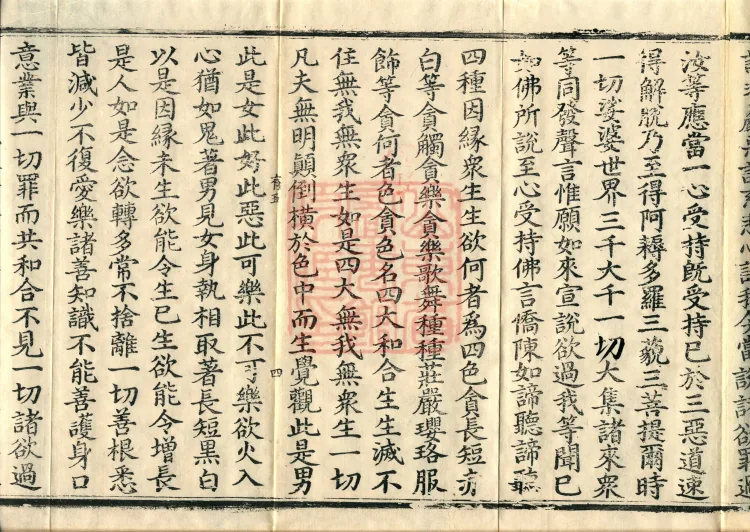 汝等應當一心受持旣受持已於三惡道速
得解脫乃至得阿耨多羅三藐三菩提爾時
一切娑婆世界三千大千一切大集諸來衆
等同發聲言惟願如來宣說欲過我等聞已
如佛所說至心受持佛言憍陳如諦聽諦聽
四種因緣衆生生欲何者爲四色貪長短赤
白等貪觸貪樂貪樂歌舞種種莊嚴瓔珞服
飾等貪何者色貪色名四大和合生生滅不
住無我無衆生如是四大無我無衆生一切
凡夫無明顛倒橫於色中而生覺觀此是男
育五
四
此是女此好此惡此可樂此不可樂欲火入
心猶如鬼著男見女身執相取著長短黑白
以是因緣未生欲能令生已生欲能令增長
是人如是念欲轉多常不捨離一切善根悉
皆減少不復愛樂諸善知識不能善護身口
意業與一切罪而共和合不見一切諸欲過